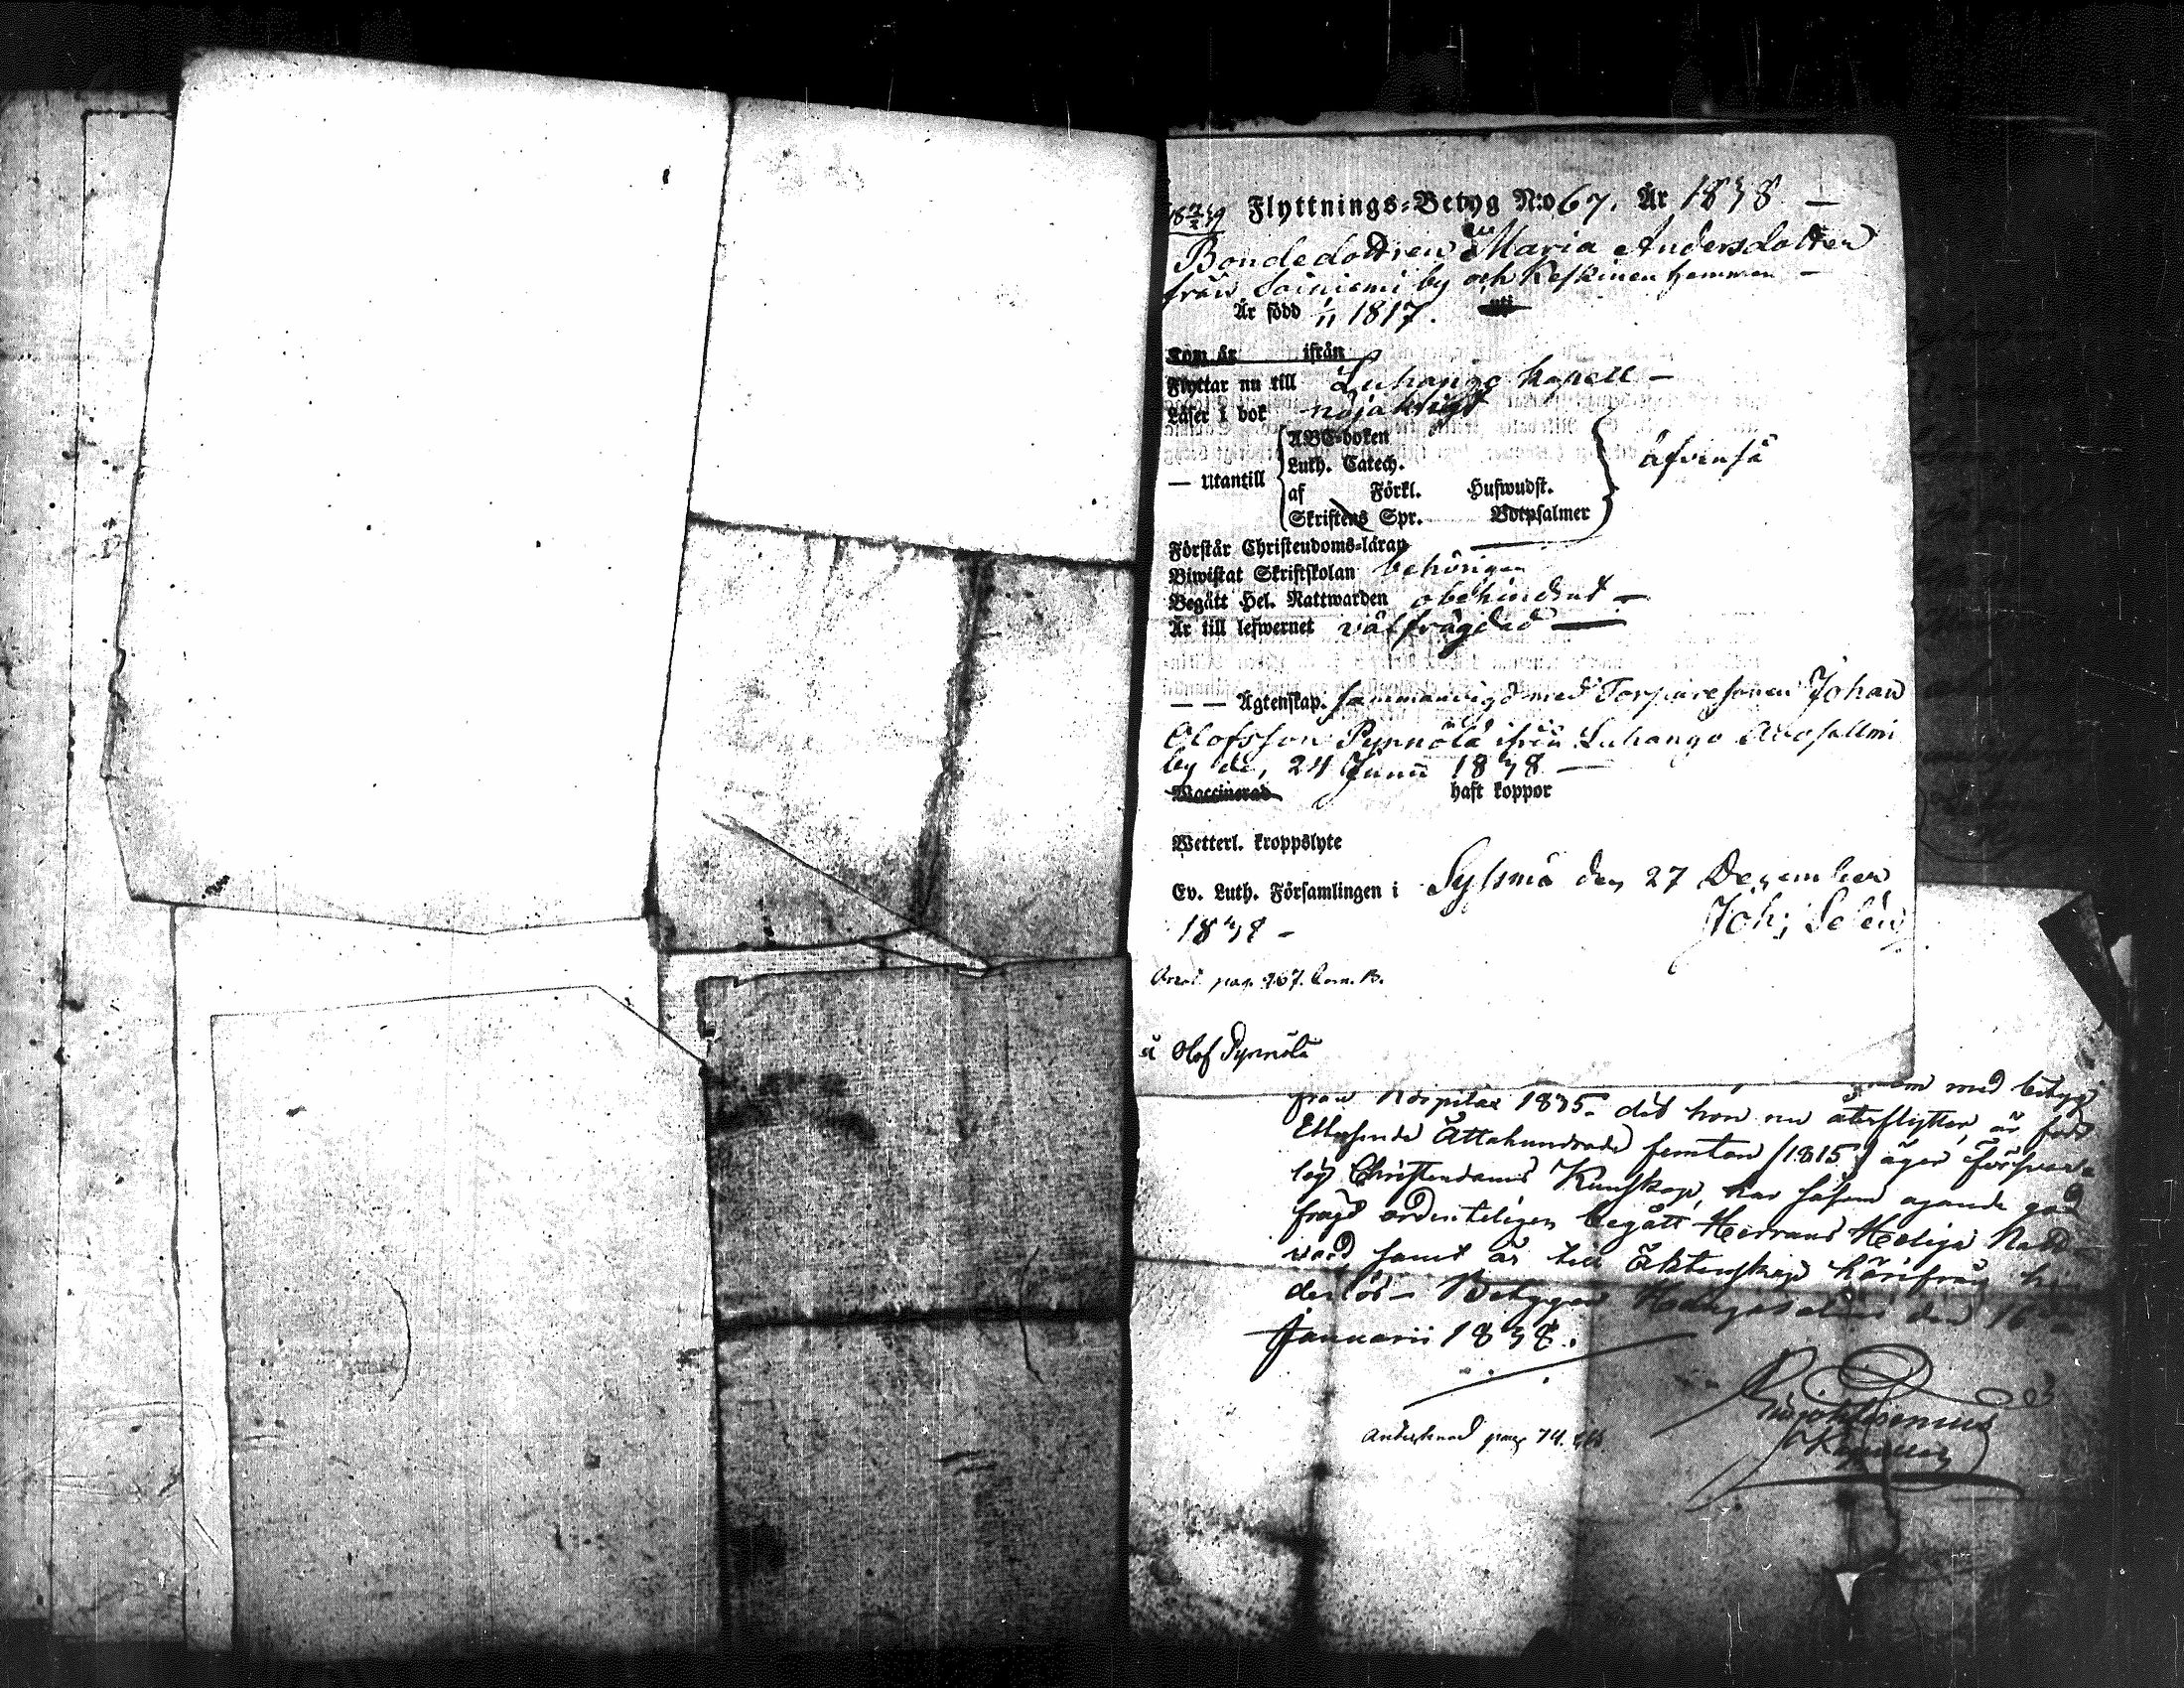 Flyttnings-Betyg N:o 67. År 1838 —
Bondedottren Maria Andersdotter
från Soiniemi by och Keskinen hemman —
Är född 1/11 1817. uti
Kom år ifrån
Flyttar nu till Luhango kapell —
Läser i bok nöjaktigt
— Utantill
ABC-boken
Luth. Catech.
af Förkl. Hufwudst.
Skriftens Spr. Botpsalmer
äfvenså
Förstår Christendoms-läran
Biwistat Skriftskolan behörigen
Begått Hel. Nattwarden obehindrat —
Är till lefwernet välfrägdad —
— — Ägtenskap. sammanvigd med Torparesonen Johan
Olofsson Pynnölä ifrån Luhango
by den 24 Junii 1838 —
Waccinerad haft koppor
Wetterl. kroppslyte
Ev. Luth. Församlingen i Sysmä den 27 December
1838 —
Joh: Selén
pag. 967.
Olof Pynnölä
med betyg
från 1835. dit hon nu återflyttar, är född
Ettusende Åttahundrade femton /1815/ äger försvar-
lig Christendoms Kunskap, har såsom ägande god
frägd ordenteligen begått Herrans Heliga Natt-
ward, samt är till Äktenskap härifrån hin-
derlös — Betygar Hangasalmi den 16
Januarii 1838.
Antecknad pag 74.
Kapellan